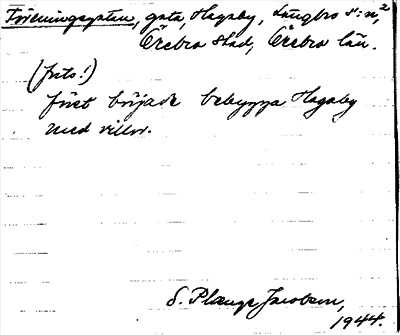 Föreningsgatan, gata, Hagaby, Längbro s:n, 2
Örebro stad, Örebro län.
(forts.)
först började bebygga Hagaby
med villor.
S. Plange Jacobson,
1944.